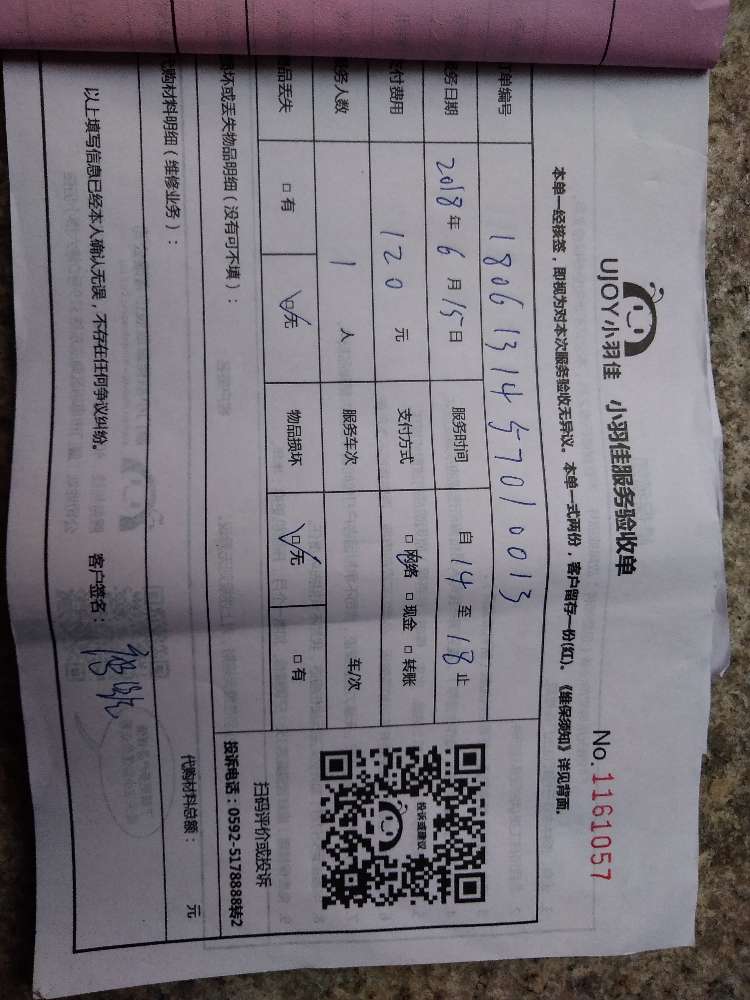 UJOY小羽佳 小羽佳服务验收单 No. 1161057
本单一经核签，即视为对本次服务验收无异议。本单一式两份，客户留存一份(红)。《维保须知》详见背面。
单编号 180613145701 0013
务日期 2018年6月15日 服务时间 自14至18止
付费用 120元 支付方式 □网络 □现金 □转账
务人数 1人 服务车次 车/次
品丢失 □有 □无 物品损坏 □无 □有
坏或丢失物品明细（没有可不填）：
投诉或建议
扫码评价或投诉
投诉电话：0592-5178888转2
购材料明细（维修业务）：
代购材料总额： 元
以上填写信息已经本人确认无误，不存在任何争议纠纷。 客户签名：